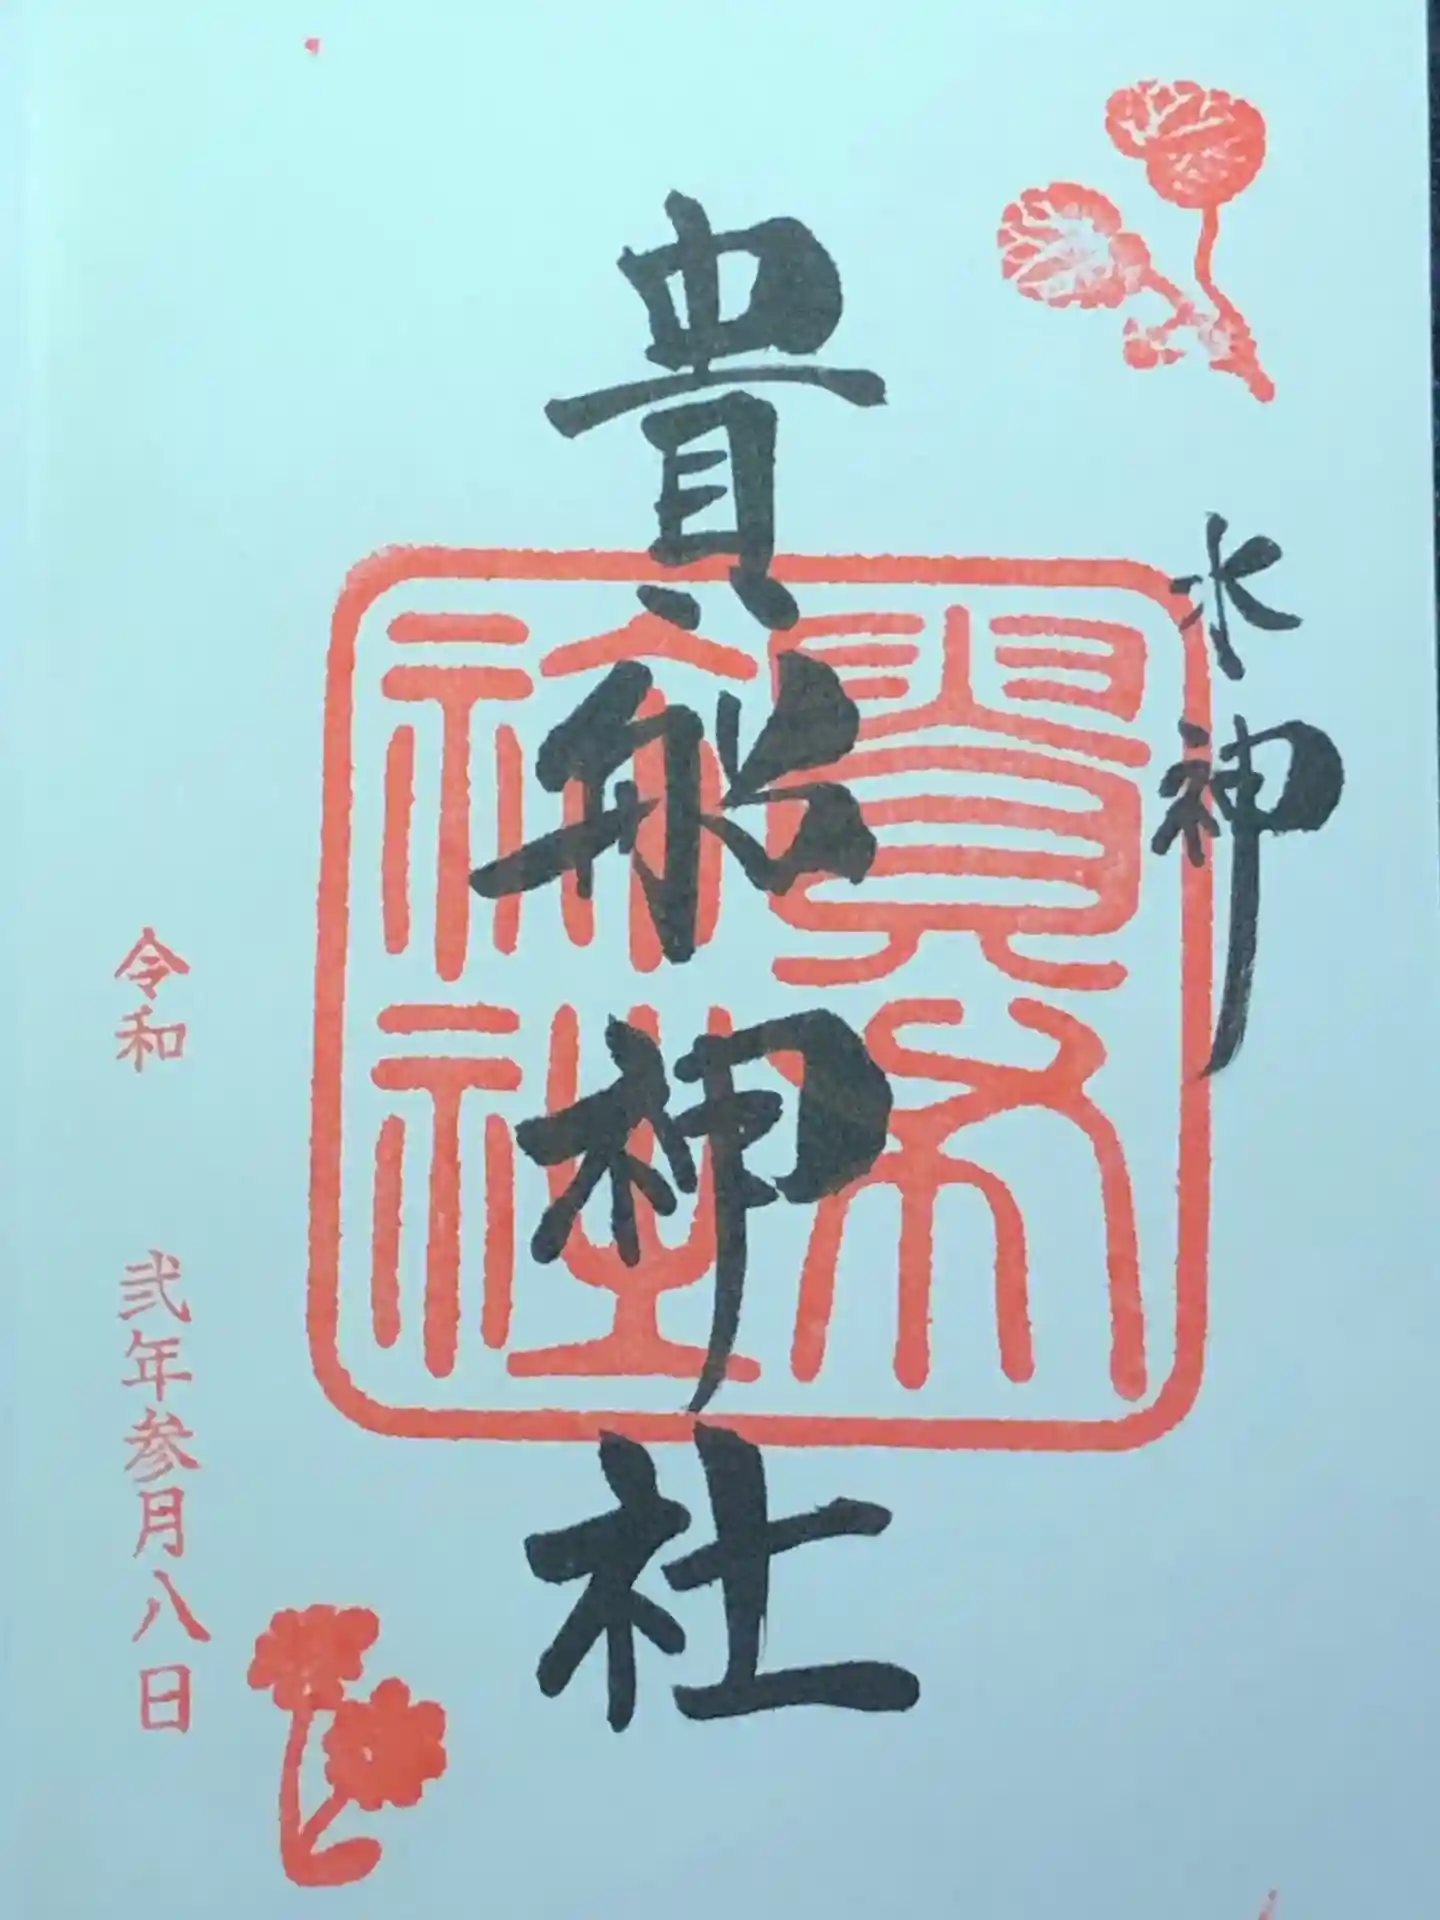 水神
貴船神社
貴布
祢社
令和 弐年参月八日